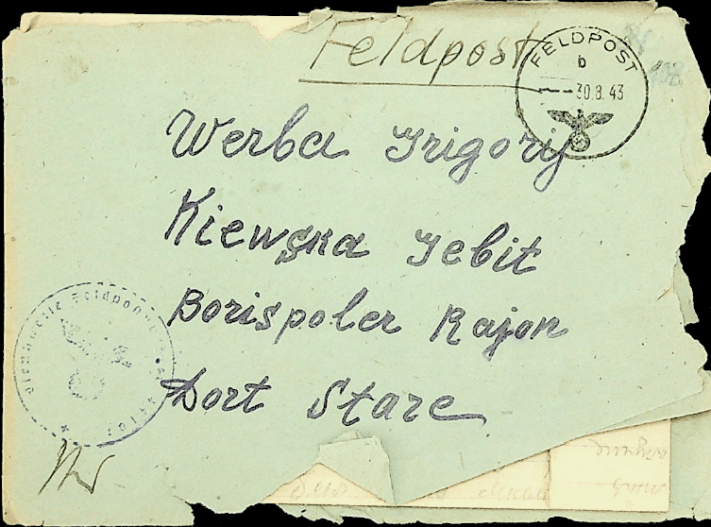 Feldpost
FELDPOST
b
30.8.43
Werba Grigorij
Kiewska Gebit
Borispoler Rajon
Dorf Stare
Dienststelle Feldpost